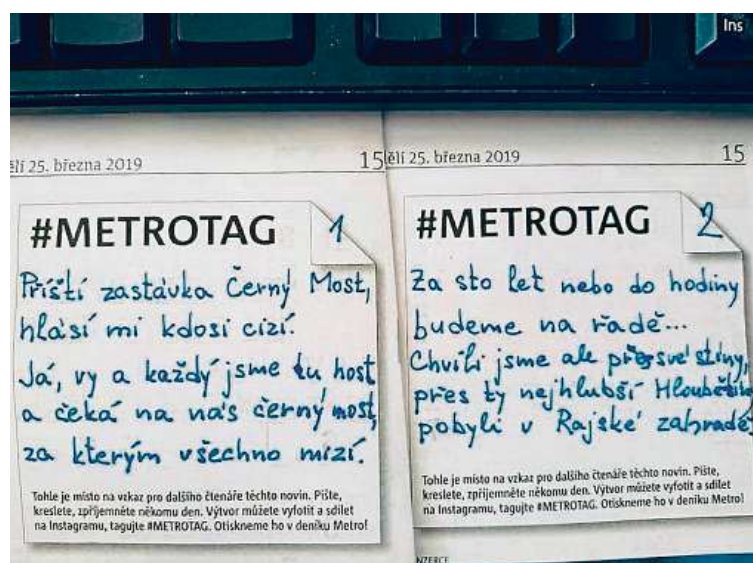 Ins
ělí 25. března 2019 15
#METROTAG 1
Příští zastávka Černý Most,
hlásí mi kdosi cizí.
Já, vy a každý jsme tu host
a čeká na nás černý most,
za kterým všechno mizí.
Tohle je místo na vzkaz pro dalšího čtenáře těchto novin. Pište,
kreslete, zpříjemněte někomu den. Výtvor můžete vyfotit a sdílet
na Instagramu, tagujte #METROTAG. Otiskneme ho v deníku Metro!
ělí 25. března 2019 15
#METROTAG 2
Za sto let nebo do hodiny
budeme na řadě...
Chvíli jsme ale přes své stíny,
přes ty nejhlubší Hloubětíny
pobyli v Rajské zahradě.
Tohle je místo na vzkaz pro dalšího čtenáře těchto novin. Pište,
kreslete, zpříjemněte někomu den. Výtvor můžete vyfotit a sdílet
na Instagramu, tagujte #METROTAG. Otiskneme ho v deníku Metro!
INZERCE